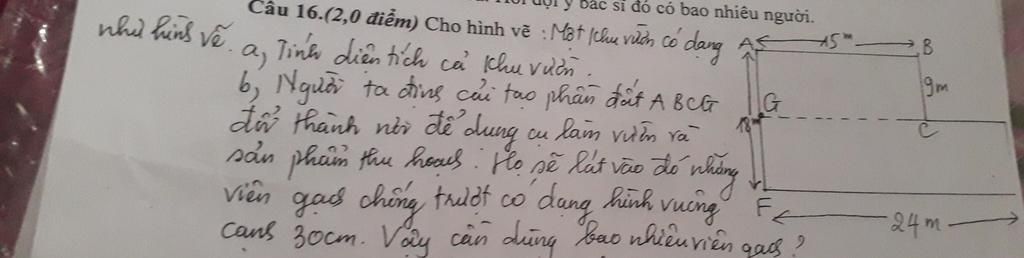 đội y bác sĩ đó có bao nhiêu người.
Câu 16.(2,0 điểm) Cho hình vẽ : Một khu vườn có dạng
như hình vẽ. a, Tính diện tích cả khu vườn.
b, Người ta định cải tạo phần đất ABCG
để thành nơi để dụng cụ làm vườn và
sản phẩm thu hoạch. Họ sẽ lát vào đó những
viên gạch chống trượt có dạng hình vuông
cạnh 30cm. Vậy cần dùng bao nhiêu viên gạch?
A 15m B
9m
G C
18m
F 24m